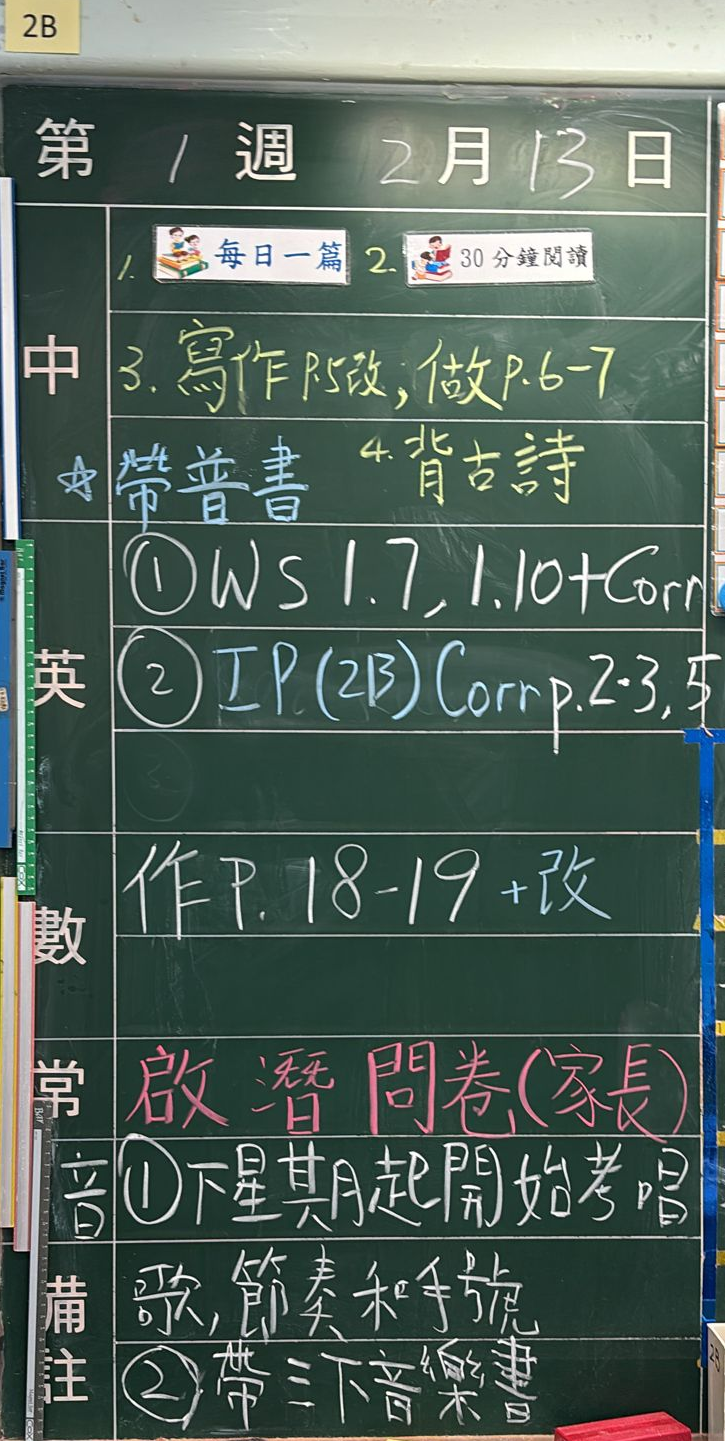 2B
第 1 週 2 月 13 日
中
1. 每日一篇 2. 30分鐘閱讀
3. 寫作P.5改, 做P.6-7
4. 背古詩
☆帶普書
英
①WS 1.7, 1.10+Corr
②IP(2B) Corr p.2-3, 5
數
作P. 18-19 +改
常
啟潛問卷(家長)
音
①下星期起開始考唱
備註
歌, 節奏和手號
②帶三下音樂書